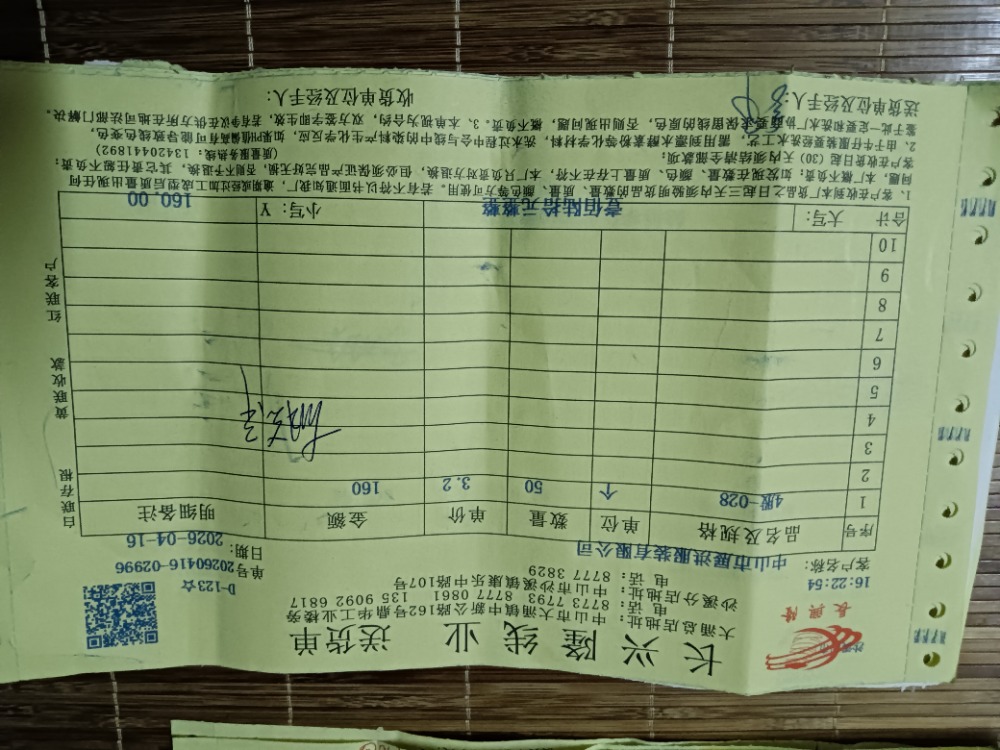 长兴隆线业 送货单
长兴隆
大涌总店地址：中山市大涌镇中新公路162号鼎华工业楼旁
电话：8773 7793 8777 0861 135 9092 6817
沙溪分店地址：中山市沙溪镇康乐中路107号
电话：8777 3829
D-123☆
16:22:54
单号20260416-029996
客户名称：中山市展洪服装有限公司
日期：2026-04-16
序号 品名及规格 单位 数量 单价 金额 明细备注
1 4股-028 个 50 3.2 160
2
3
4
5
6
7
8
9
10
合计 大写：壹佰陆拾元整整 小写：￥ 160.00
白联存根 黄联收款 红联客户
1、客户在收到本厂货品之日起三天内须验明货品的数量、质量、颜色等方可使用。若有不符以书面通知我厂，逾期或经过加工成型后质量出现任何
问题，本厂概不负责。如发现在数量、颜色、质量上存在不符，本厂只负责对方退换，但必须保证产品完好无损，否则不予退换，其它责任恕不负责；
客户在收货日起（30）天内须结清全部款项；（质量服务热线：13420441892）
2、由于牛仔服装要经洗水工艺，需用到漂水酵素粉等化学材料，洗水过程中会与线中的染料产生化学反应，如果PH值偏高有可能导致线色变色，
鉴于此一定要和洗水厂协商要求保留线的原色，否则出现问题，概不负责。3、本单视为合约，双方签字即生效，若有争议在供方所在地司法部门解决。
送货单位及经手人： 收货单位及经手人：